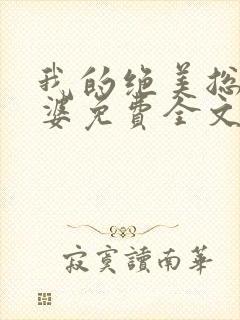 我的绝美总
婆免费全文
寂寞讀南華